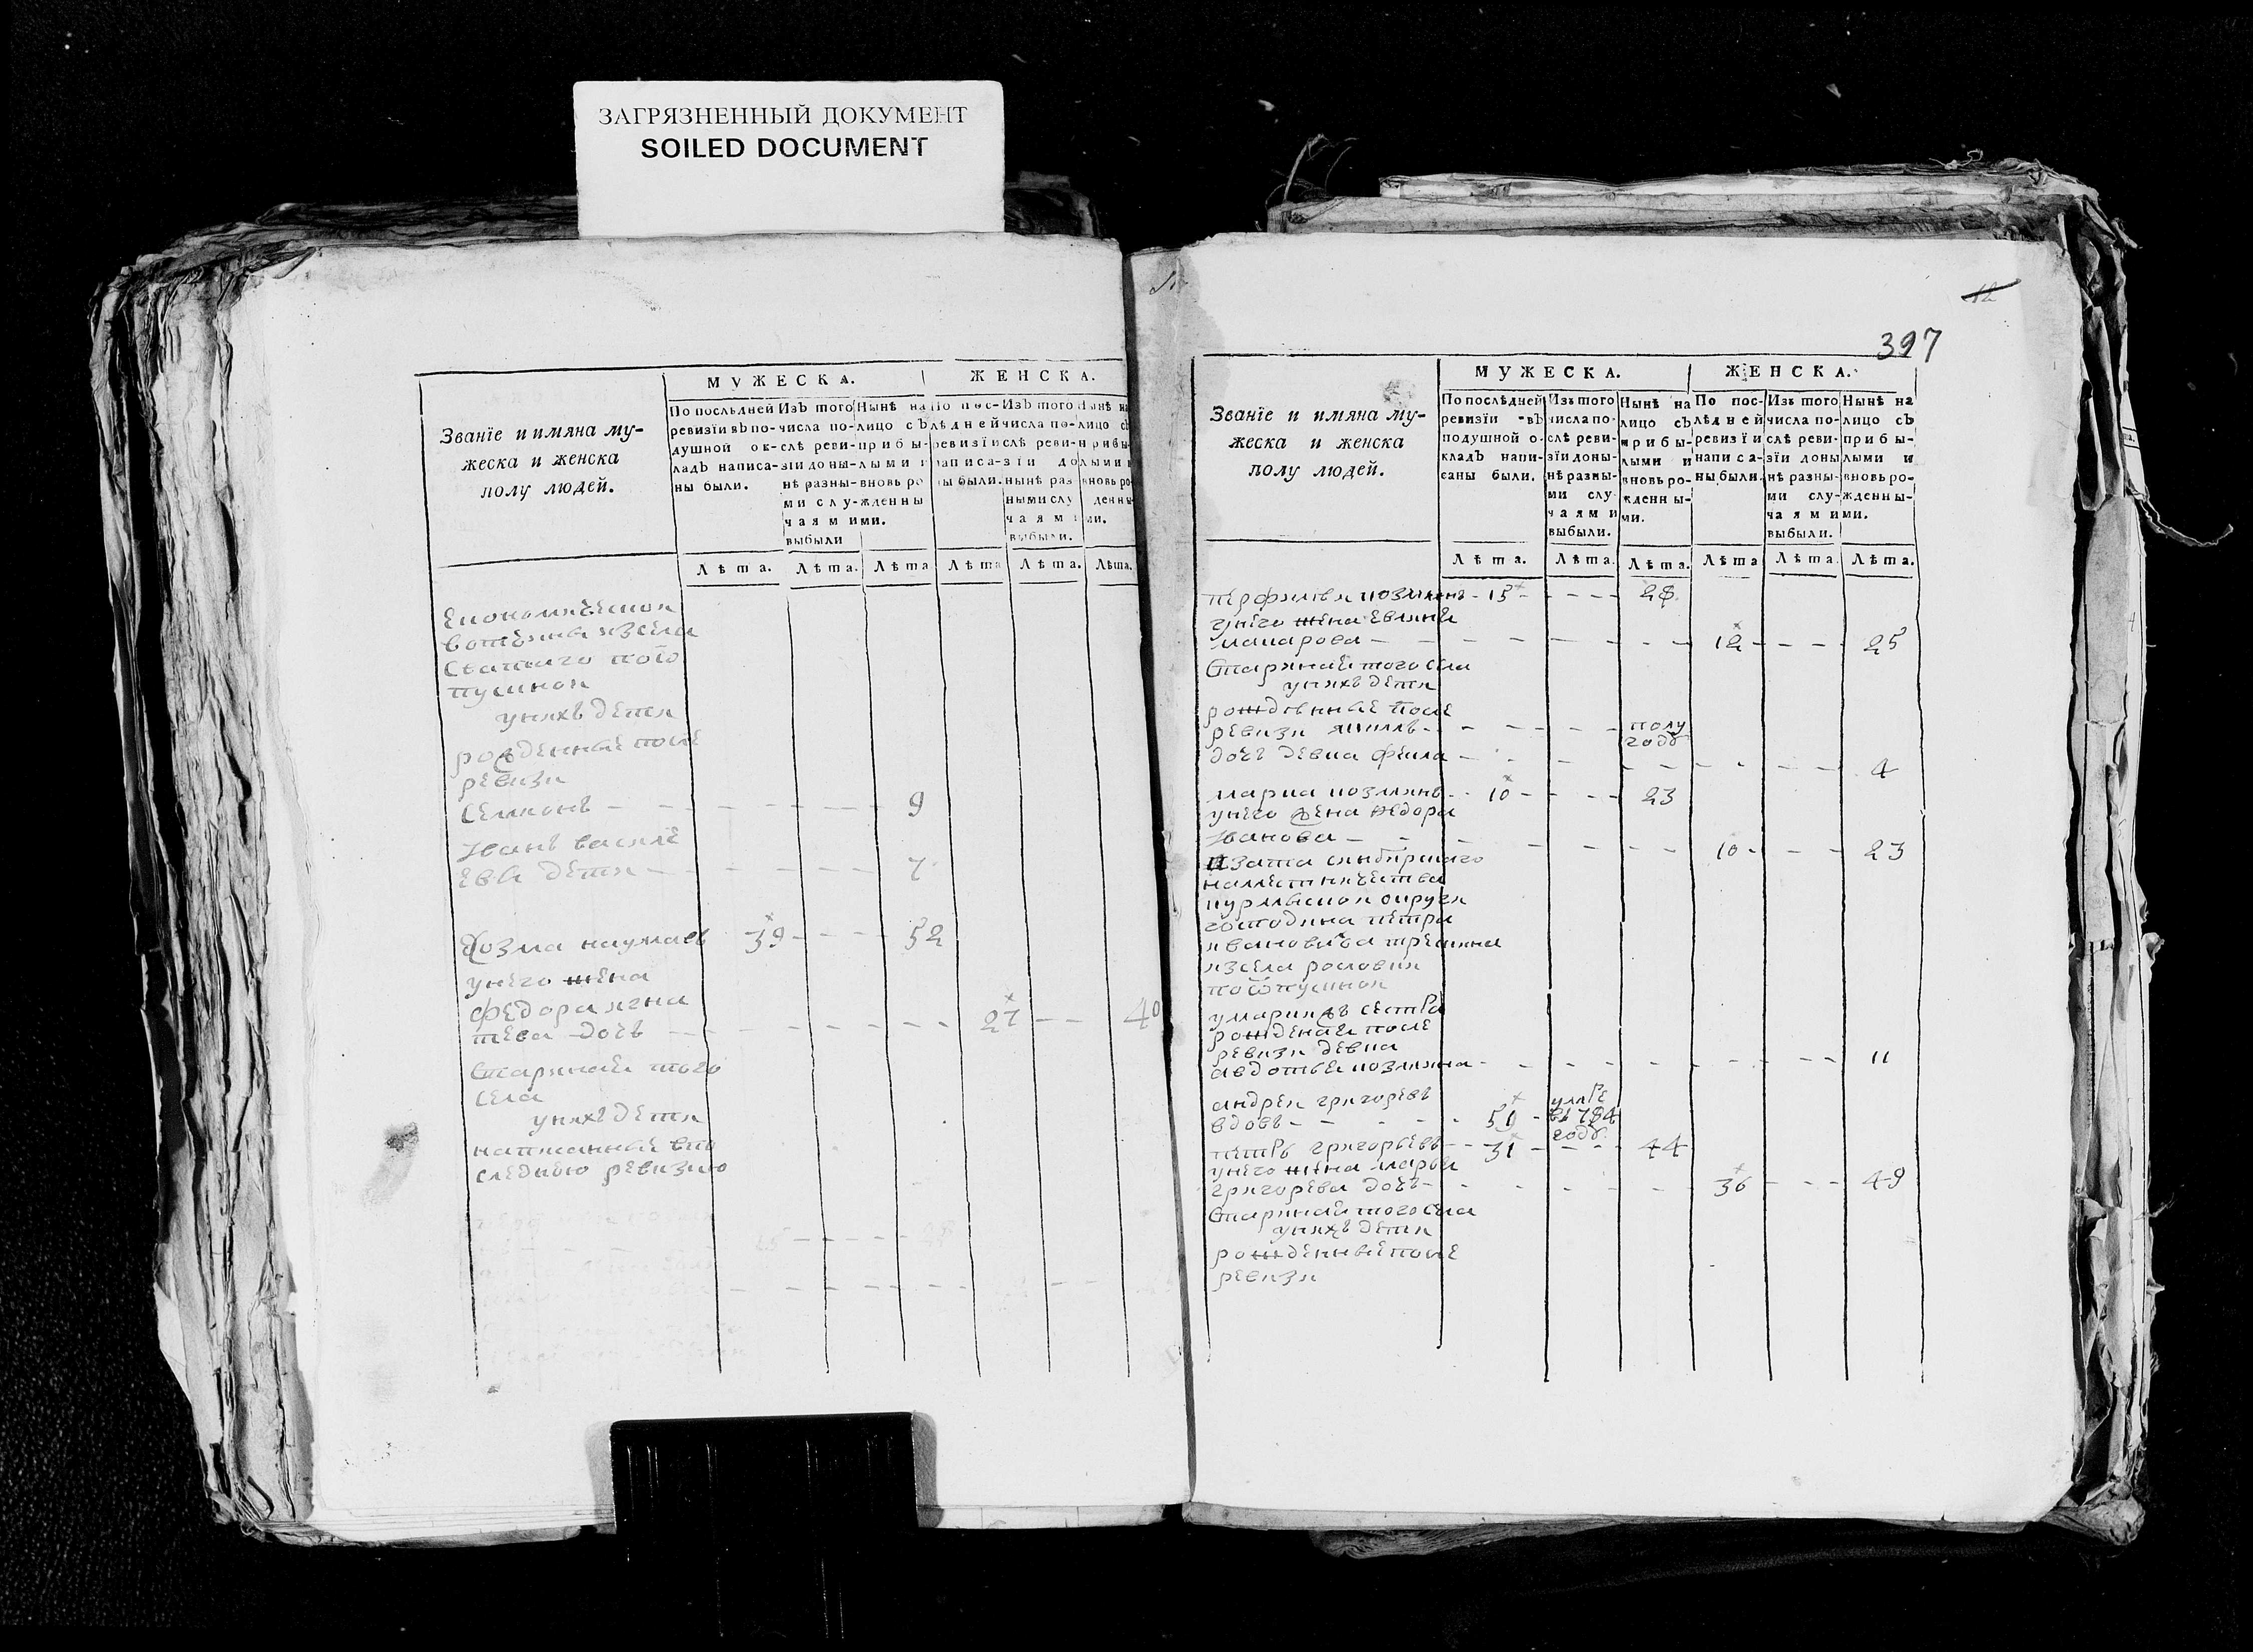 ЗАГРЯЗНЕННЫЙ ДОКУМЕНТ
SOILED DOCUMENT
Званїе и имяна му-
жеска и женска
полу людей.
МУЖЕСКА.
ЖЕНСКА.
По послѣдней
ревизїи въ по-
душной ок-
ладъ написа-
ны были.
Изъ того
числа по-
слѣ реви-
зїи доны-
нѣ разны-
ми слу-
чаями
выбыли
Нынѣ на
лицо съ
прибы-
лыми и
вновь ро
жденны
ми.
По пос-
лѣдней
ревизїи
написа-
ны были.
Изъ того
числа по-
слѣ реви-
зїи до
нынѣ раз
ными слу
чаями
выбыли.
Нынѣ на
лицо съ
прибы
лыми и
вновь ро-
денны
ми.
Лѣта. Лѣта. Лѣта Лѣта Лѣта. Лѣта.
Економической
вотчины изсела
пущиной
унихъ дети
рожденные после
ревизи
Семионъ - - - 9
Иванъ василе
евы дети - - - 7
Козма наумаевъ 39 - - - 52
унего жена
федора игна
тева дочь - - - 27 - - 40
Старинаея того
села
унихъ дети
написанные впо
следнею ревизию
12
397
Званїе и имяна му-
жеска и женска
полу людей.
МУЖЕСКА.
ЖЕНСКА.
По послѣдней
ревизїи въ
подушной о-
кладъ напи-
саны были.
Изъ того
числа по-
слѣ реви-
зїи доны-
нѣ разны-
ми слу
чаями
выбыли.
Нынѣ на
лицо съ
прибы-
лыми и
вновь ро-
жденны-
ми.
По пос-
лѣдней
ревизїи
написа-
ны были.
Изъ того
числа по-
слѣ реви-
зїи доны
нѣ разны-
ми слу-
чаями
выбыли.
Нынѣ на
лицо съ
прибы-
лыми и
вновь ро-
жденны-
ми.
Лѣта. Лѣта. Лѣта. Лѣта Лѣта. Лѣта.
перфилеи козминъ - 15 - - - - 28
унего жена
макарова - - - 12 - - - - 25
Старинаея того села
унихъ дети
рожденные после
ревизи - - - полу
году
дочь девка фекла - - - 4
10 - - - 23
унего жена федора
Иванова - - - 10 - - - 23
взята синбирскаго
наместничества
курмыской округи
господина петра
ивановича
изсела
пущиной
сестра
рожденая после
ревизи девка
авдотья козмина - - - 11
андреи григоревъ
вдовъ - - - 59 - умре
в1784
году
петръ григорьевъ - - 31 - - - 44
унего жена марья
григорева дочь - - - 36 - - - 49
Старинаея того села
унихъ дети
рожденные после
ревизи